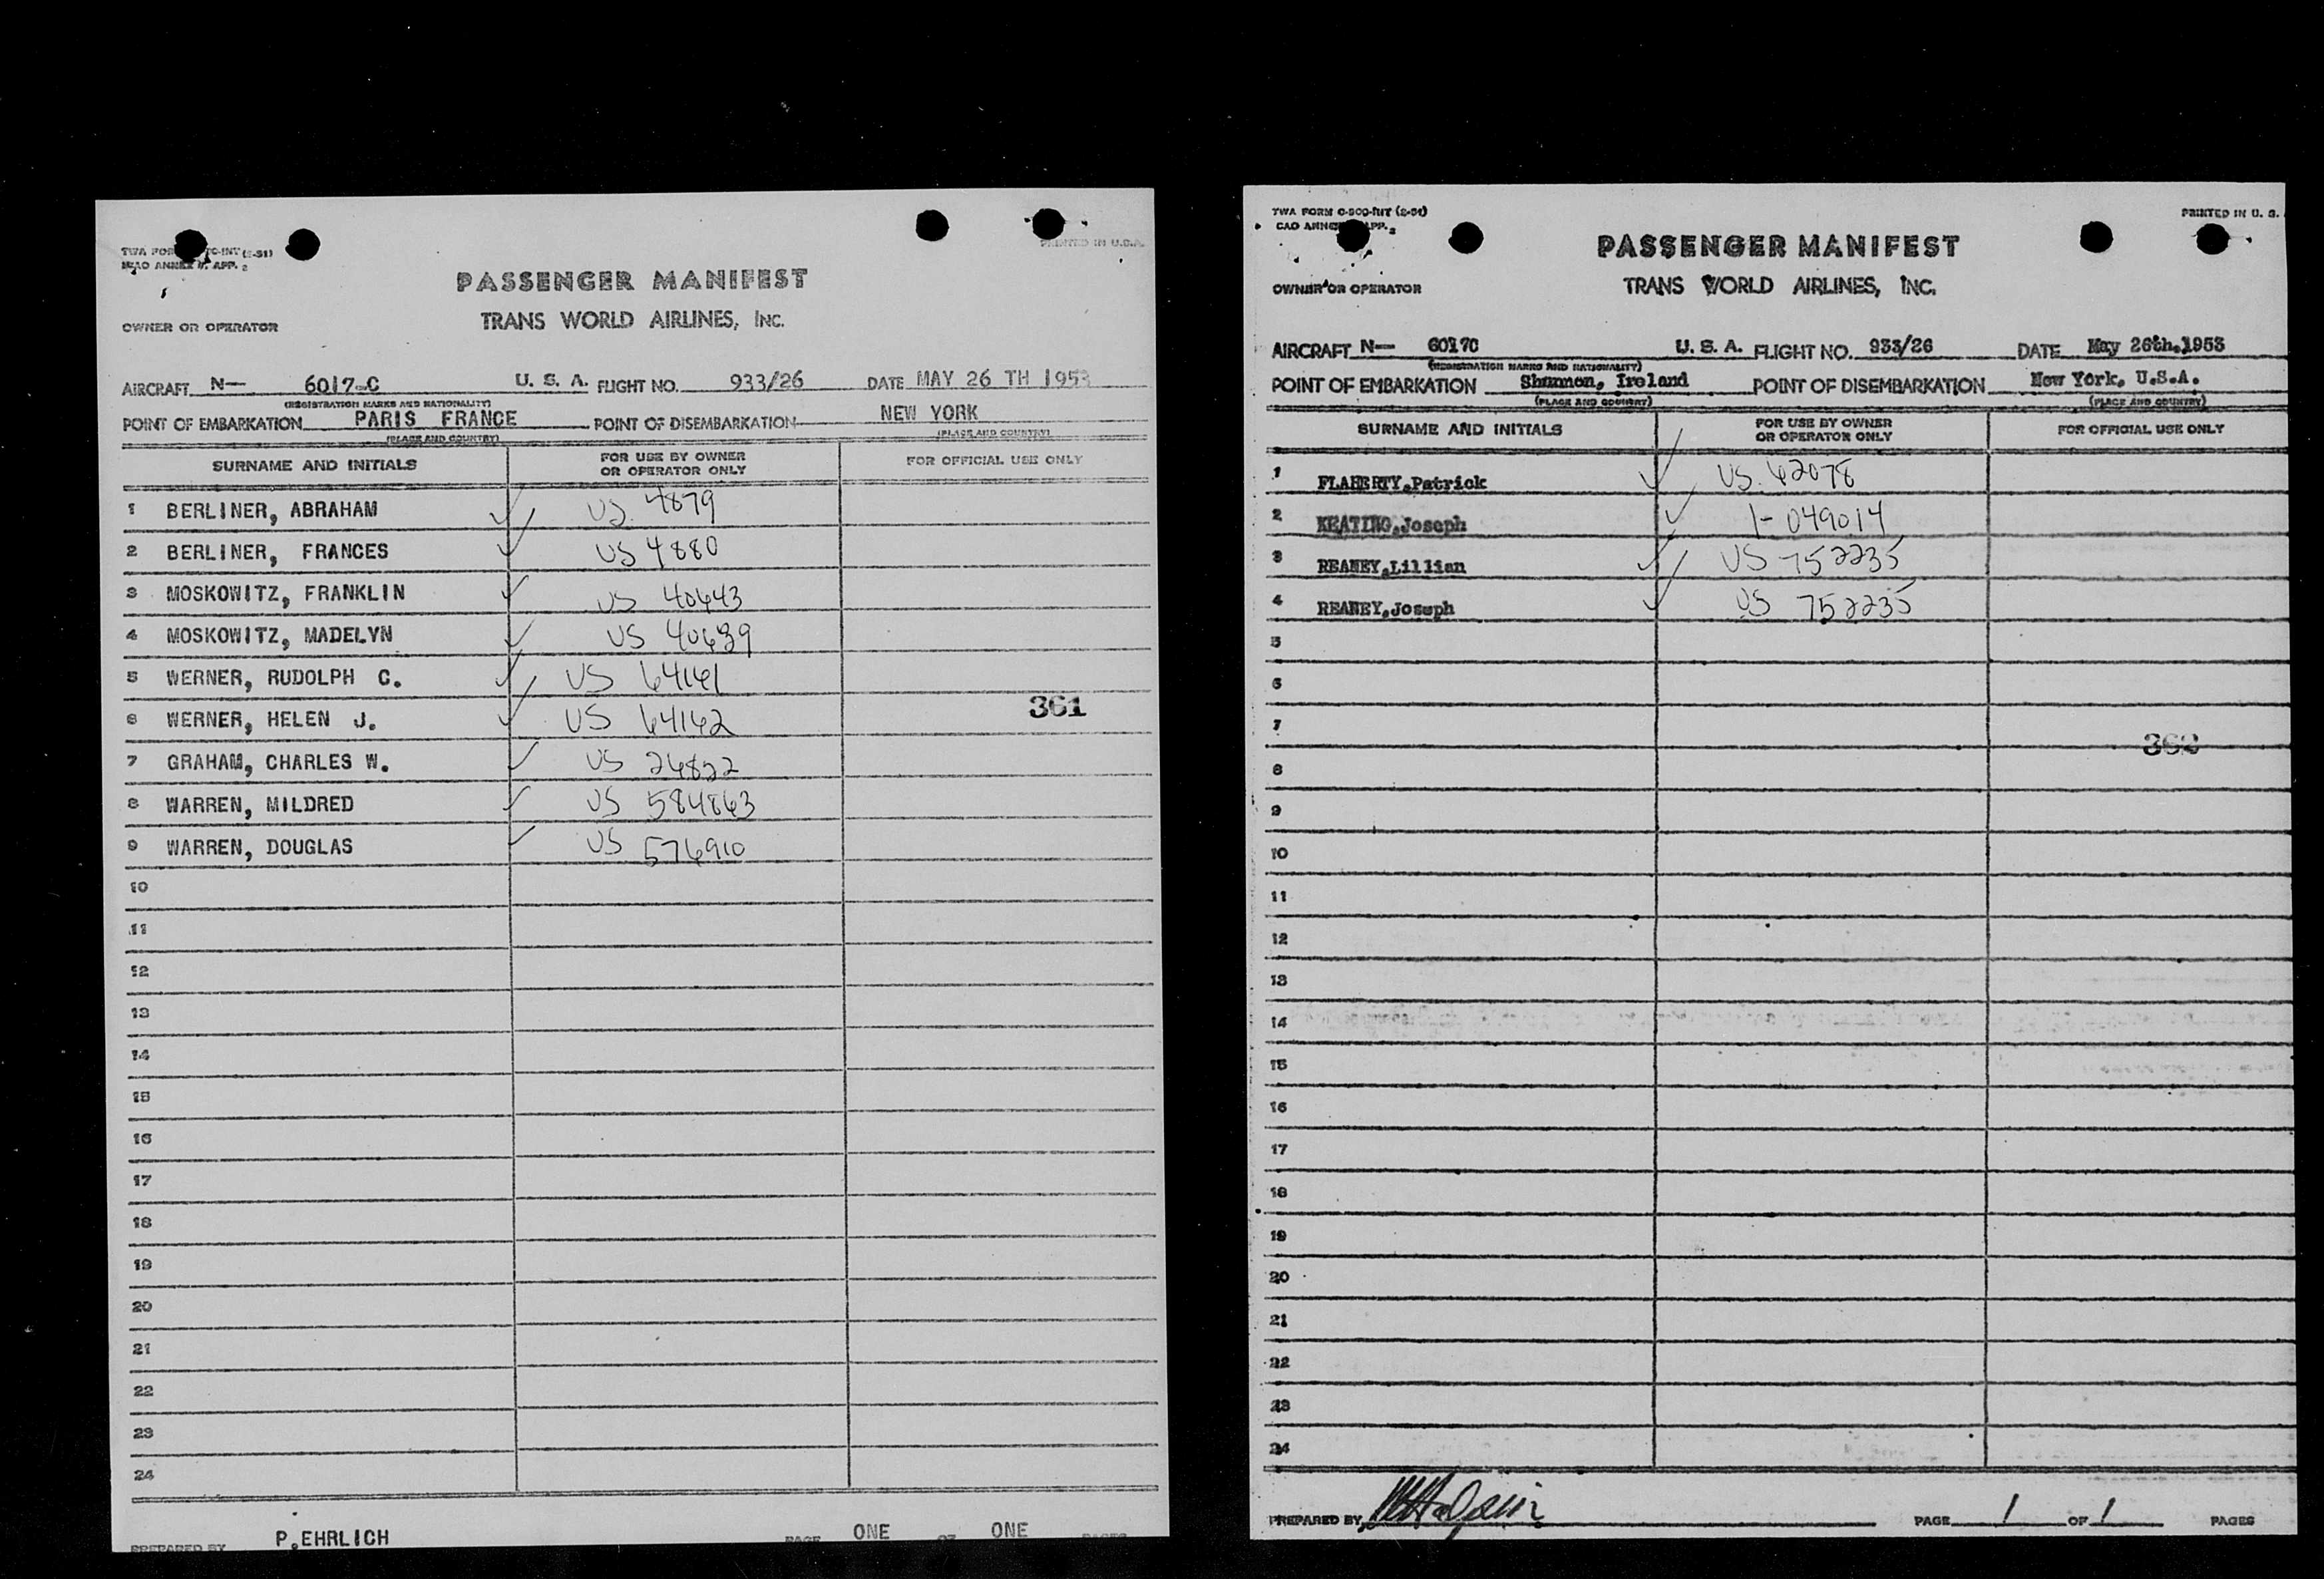 PRINTED IN U.S.A.
PASSENGER MANIFEST
TRANS WORLD AIRLINES, INC.
OWNER OR OPERATOR
AIRCRAFT N— 6017-C U. S. A. FLIGHT NO. 933/26 DATE MAY 26 TH 1953
(REGISTRATION MARKS AND NATIONALITY)
POINT OF EMBARKATION PARIS FRANCE POINT OF DISEMBARKATION NEW YORK
(PLACE AND COUNTRY) (PLACE AND COUNTRY)
SURNAME AND INITIALS FOR USE BY OWNER OR OPERATOR ONLY FOR OFFICIAL USE ONLY
1 BERLINER, ABRAHAM US 4879
2 BERLINER, FRANCES US 4880
3 MOSKOWITZ, FRANKLIN US 40643
4 MOSKOWITZ, MADELYN US 40639
5 WERNER, RUDOLPH C. US 64161
6 WERNER, HELEN J. US 64162
361
7 GRAHAM, CHARLES W. US 26822
8 WARREN, MILDRED US 584863
9 WARREN, DOUGLAS US 576910
10
11
12
13
14
15
16
17
18
19
20
21
22
23
24
PREPARED BY P.EHRLICH PAGE ONE OF ONE PAGES
TWA FORM (2-51) PRINTED IN U. S.
PASSENGER MANIFEST
TRANS WORLD AIRLINES, INC.
OWNER OR OPERATOR
AIRCRAFT N— 6017C U. S. A. FLIGHT NO. 933/26 DATE May 26th.1953
(REGISTRATION MARKS AND NATIONALITY)
POINT OF EMBARKATION Shannon, Ireland POINT OF DISEMBARKATION New York, U.S.A.
(PLACE AND COUNTRY) (PLACE AND COUNTRY)
SURNAME AND INITIALS FOR USE BY OWNER OR OPERATOR ONLY FOR OFFICIAL USE ONLY
1 FLAHERTY,Patrick US. 62078
2 KEATING,Joseph 1-049014
3 REANEY,Lillian US 752235
4 REANEY,Joseph US 752235
5
6
7
362
8
9
10
11
12
13
14
15
16
17
18
19
20
21
22
23
24
PREPARED BY PAGE 1 OF 1 PAGES